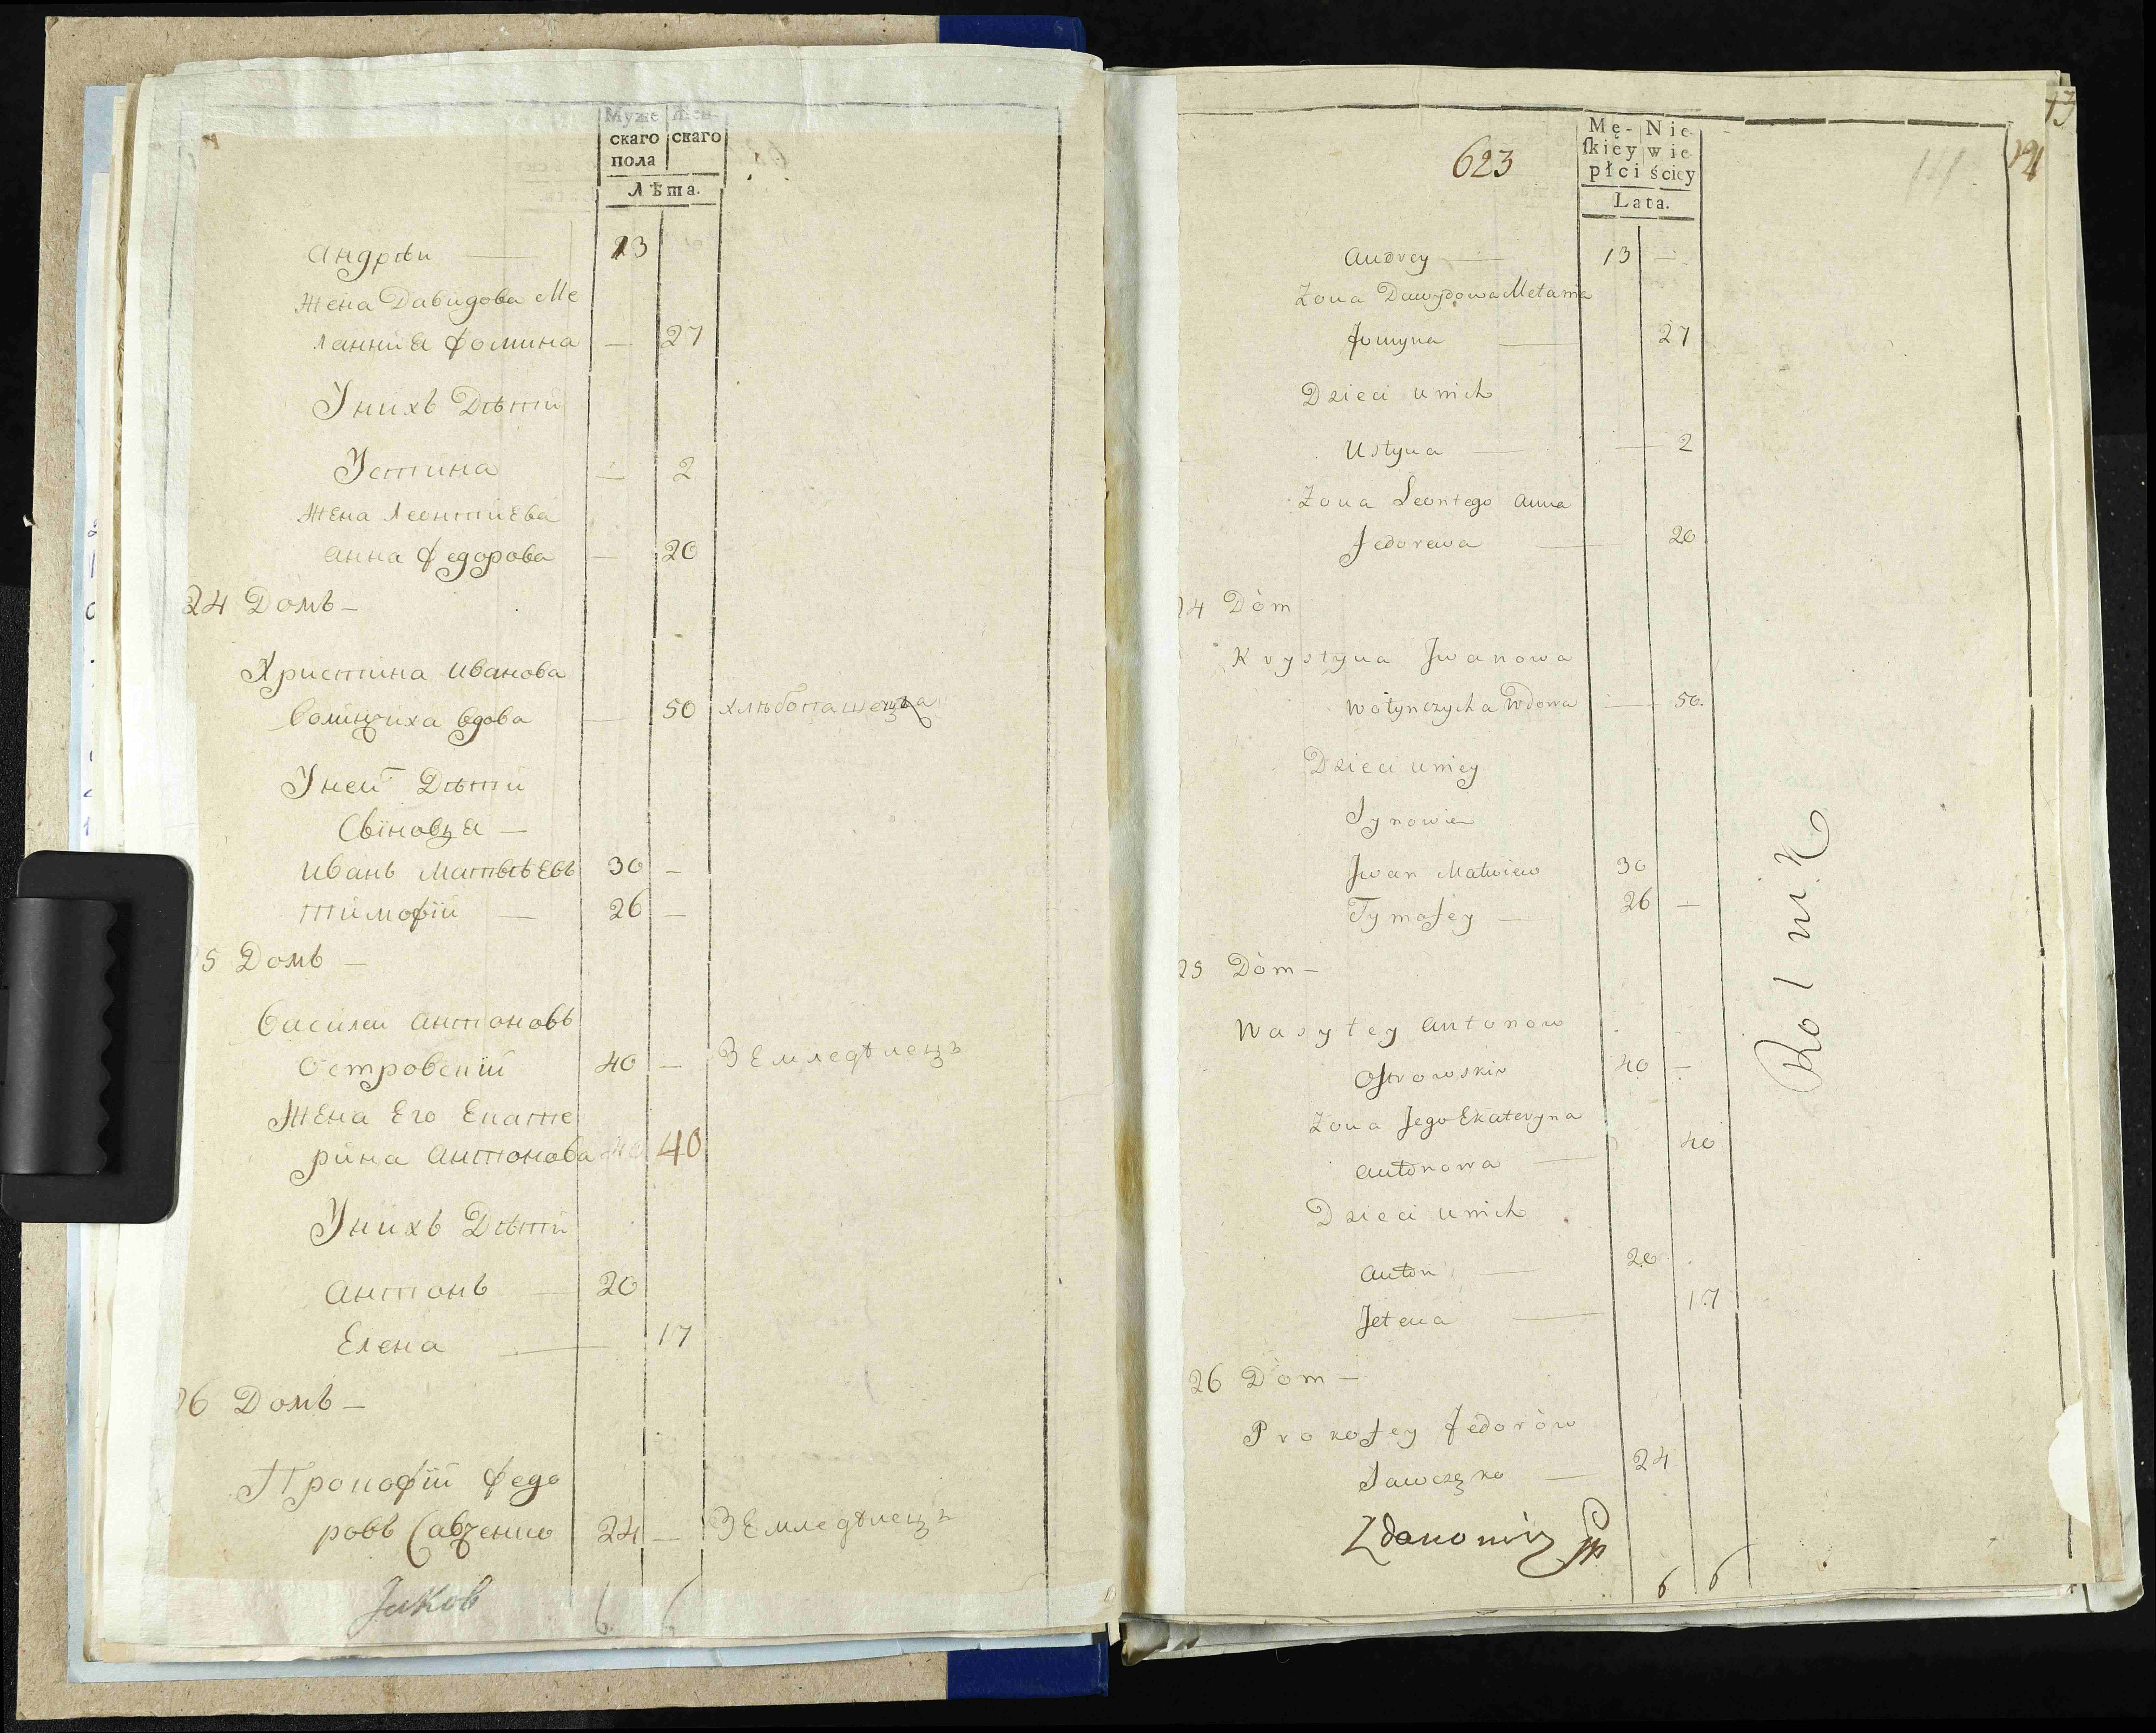 Муже Жен-
скаго скаго
пола
Лѣта.
Андрѣи — 13
Жена Давидова Ме
ланния Фомина — 27
У нихъ Дѣти
Устина — 2
Жена Леонтиева
Анна Федорова — 20
24 Домъ —
Христина Иванова
Волинчиха вдова — 50 хлѣбопашецъ
У неи Дѣти
Сиїновя —
Иванъ Матвѣевъ 30 —
Тимофїй — 26 —
5 Домъ —
Василеи Антоновъ
Островский 40 — Земледѣлецъ
Жена Его Екате
рина Антонова 40 40
У нихъ Дѣти
Антонъ — 20
Елена — 17
26 Домъ —
Прокофїй Федо
ровъ Савченко 24 — Земледѣлецъ
6 6
13
191
111
623
Mę- Nie-
skiey wie-
płci ściey
Lata.
Andrey — 13 —
Zona Dawydowa Melania
Fomyna — 27
Dzieci u nich
Ustyna — 2
Zona Leontego Anna
Fedorowa — 20
24 Dòm
Krystyna Jwanowa
Wołynczycha Wdowa — 50.
Dzieci u niey
Synowie
Jwan Matwiew 30
Tymofey — 26 —
25 Dòm —
Wasyley Antonow
Ostrowskiy 40 —
Zona Jego Ekateryna
Antonowa — 40
Dzieci u nich
Anton — 20
Jelena — 17
26 Dòm —
Prokofey Fedorów
Sawczęko — 24
Rolnik
Zdanowicz
6 6